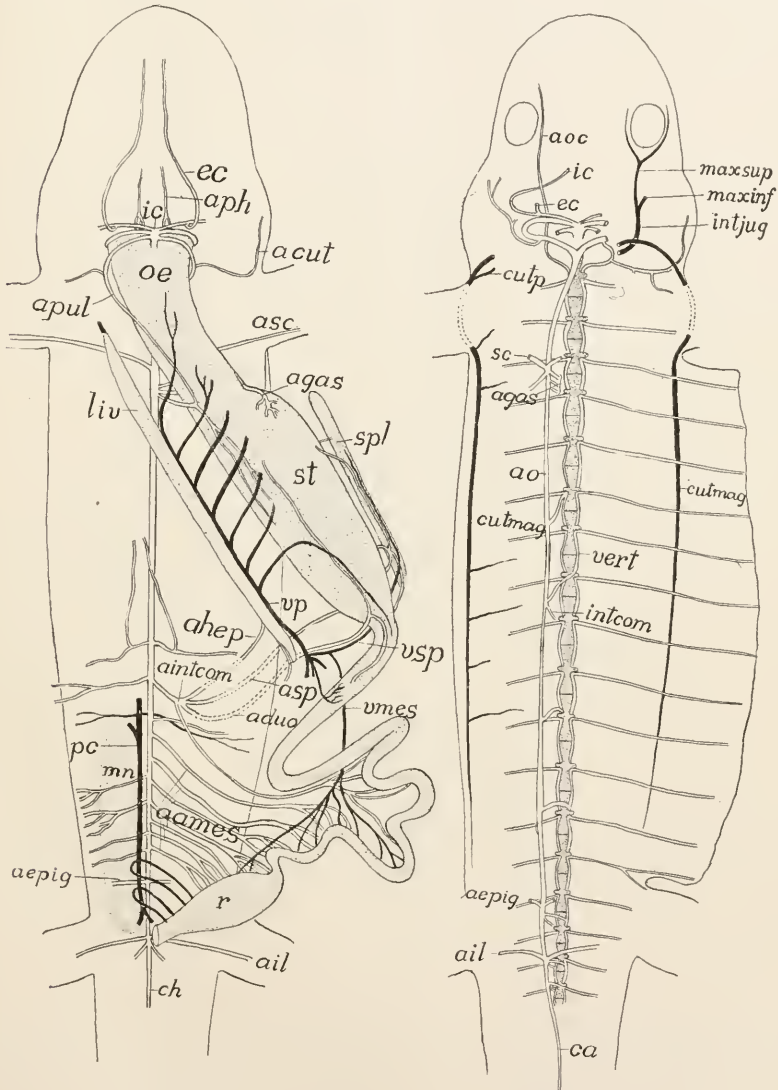 ec
aph
ic
oe
acut
apul
asc
agas
liv
spl
st
vp
ahep
vsp
aintcom
asp
aduo
vmes
pc
mn
aames
aepig
r
ail
ch
aoc
ic
maxsup
ec
maxinf
intjug
cutp
sc
agas
ao
cutmag
cutmag
vert
intcom
aepig
ail
ca